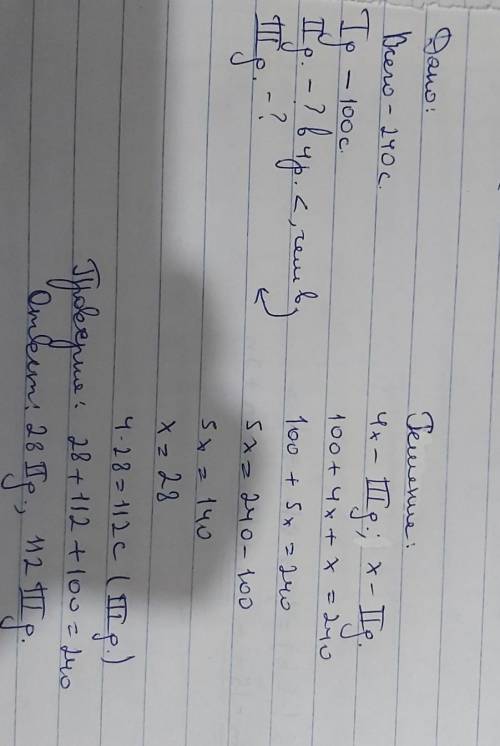 Дано:
Всего - 240с.
I р - 100с.
II р. - ? в 4 р. <, чем в
III р. - ?
Решение:
4x - III р.; x - II р.
100 + 4x + x = 240
100 + 5x = 240
5x = 240 - 100
5x = 140
x = 28
4 · 28 = 112с (III р.)
Проверка: 28 + 112 + 100 = 240
Ответ: 28 II р., 112 III р.